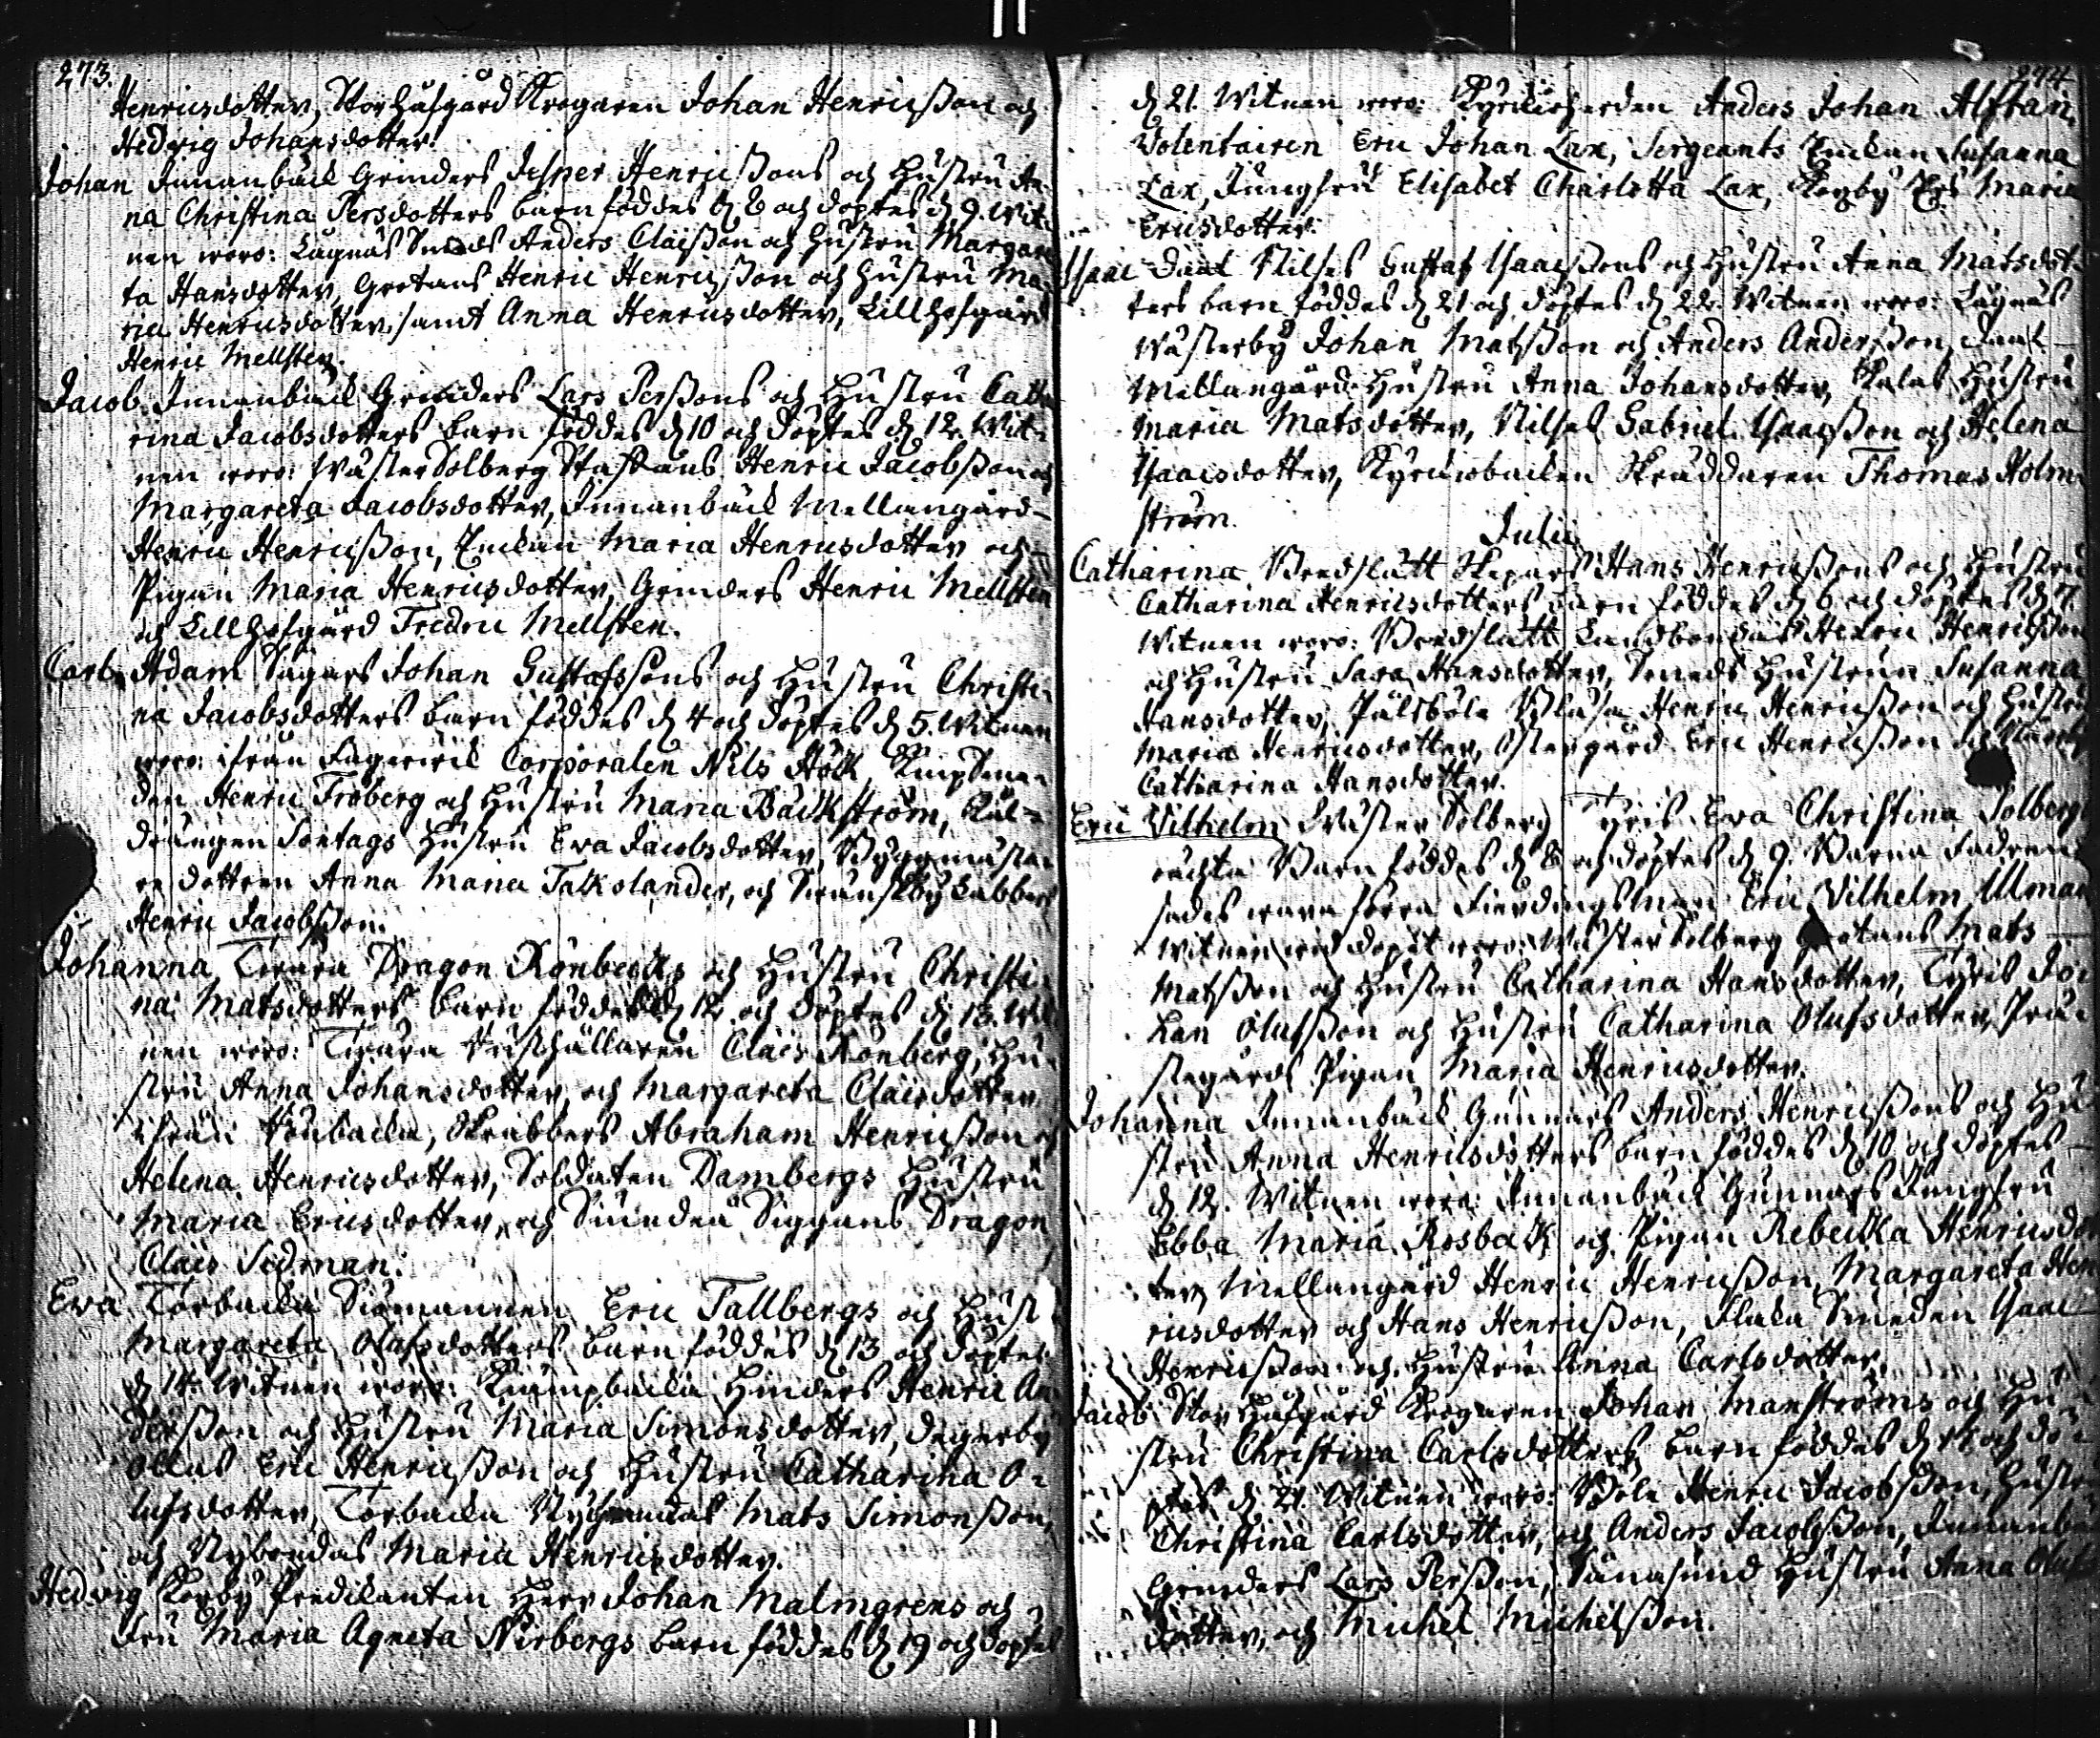 273.
Henricsdotter, Storhufgård Krogaren Johan Henricßon och
Hedvig Johansdotter.
Johan Innanbäck Grinders Jesper Henricßons och Hustru An-
na Christina Persdotters barn föddes d. 8 och döptes d. 9. Wit-
nen woro: Lågnäs Smeds Anders Claißon och Hustru Margare
ta Hansdotter, Grotans Henric Henricßon och Hustru Ma-
ria Henricsdotter, samt Anna Henricsdotter, Lillhofgård
Henric Mellsten.
Jacob Innanbäck Grinders Lars Perßons och Hustru Catha
rina Jacobsdotters barn föddes d. 10 och döptes d. 12. Wit-
nen woro: WästerSolberg Staffans Henric Jacobßon och
Margareta Jacobsdotter, Innanbäck Mellangård
Henric Henricßon, Enkan Maria Henricsdotter och
Pigan Maria Henricsdotter, Grinders Henric Mellsten
och Lillhofgård Fredric Mellsten.
Carl Adam Sågars Johan Gustafssons och Hustru Christi-
na Jacobsdotters barn föddes d. 4 och döptes d. 5. Witnen
woro: ifrån Fagerwik Corporalen Nils Hölk, KnipSme-
den Henric Froberg och Hustru Maria Bäckström, Kål-
drängen Sontags Hustru Eva Jacobsdotter, Byggmästa-
re dottren Anna Maria Talkolander, och Swansby Labbers
Henric Jacobßon.
Johanna, Twara Dragon Rönbecks och Hustru Christi-
na Matsdotters barn föddes d. 12 och döptes d. 13. Wit
nen woro: Twara Clais Rönberg, Hu-
stru Anna Johansdotter, och Margareta Claisdotter
ifrån Skrabbers Abraham Henricßon och
Helena Henricsdotter, Soldaten Dambergs Hustru
Maria Ericsdotter, och Siundeå Siggans Dragon
Clais Sidman.
Eva Torbacka Siömannen Eric Tallbergs och Hust
Margareta Olafsdotters barn föddes d. 13 och döptes
d. 14. Witnen woro: Kiumpbacka Hinders Henric An-
derßon och Hustru Maria Simonsdotter, Degerby
Ollas Eric Henricßon och Hustru Catharina O-
lufsdotter, Torbacka Mats Simonßon,
och Nybondas Maria Henricsdotter.
Hedvig Korby Predikanten Herr Johan Malmgrens och
Fru Maria Agneta Nirbergs barn föddes d. 19 och döptes
274
d. 21. Witnen woro: Kyrkioherden Anders Johan Alftan,
Volentairen Eric Johan Lax, Sergeants Enkan Susanna
Lax, Jungfru Elisabet Charlotta Lax, Korby Maria
Ericsdotter.
Isaac Nilses Gustaf Isaacßons och Hustru Anna Matsdot-
ters barn föddes d. 21 och döptes d. 22. Witnen woro: Lågnäs
Wästerby Johan Matsßon och Anders Anderßon,
Mellangård Hustru Anna Johansdotter, Hustru
Maria Matsdotter, Nilses Gabriel Isaacßon och Helena
Isaacsdotter, Kyrkiobacken Skräddaren Thomas Holm-
ström.
Julii
Catharina, Bredslätt Skepars Hans Henricßons och Hustru
Catharina Henricsdotters barn föddes d. 6 och döptes d. 7.
Witnen woro: Bredslätt Landbondas Henric Henricßon
och Hustru Sara Hansdotter, Smeds Hustrun Susanna
Hansdotter, Pålsböle Henric Henricßon och Hustru
Maria Henricsdotter, Östergård Eric Henricßon och
Catharina Hansdotter.
Eric Vilhelm Wäster Solberg Tyris Eva Christina Solbergs
oächta Barn föddes d. 8 och döptes d. 9. Barna Fadren
sades wara förra Fierdingsman Eric Vilhelm Ulman
Witnen wid dopet woro: Wäster Solberg Grotans Mats
Matsßon och Hustru Catharina Hansdotter, Tyris Jo-
han Olufsson och Hustru Catharina Olufsdotter, Prä-
stegårds Pigan Maria Henricsdotter.
Johanna Innanbäck Gunnars Anders Henricßons och Hu-
stru Anna Henricsdotters barn föddes d. 10 och döptes
d. 12. Witnen woro: Innanbäck Gunnars Jungfru
Ebba Maria Rosbäck och Pigan Rebecka Henricsdot
ter, Mellangård Henric Henricßon, Margareta Hen
ricsdotter och Hans Henricßon, Flaka Smeden Isaac
Henricßon och Hustru Anna Carlsdotter.
Jacob Storhufgård Krogaren Johan Manströms och Hu-
stru Christina Carlsdotters barn föddes d. 18 och dö-
ptes d. 21. Witnen woro: Böle Henric Jacobßon, Hustru
Christina Carlsdotter, och Anders Jacobßon, Innanbäck
Grinders Lars Perßon, Hustru Anna Olufs
dotter, och Michel Michelßon.